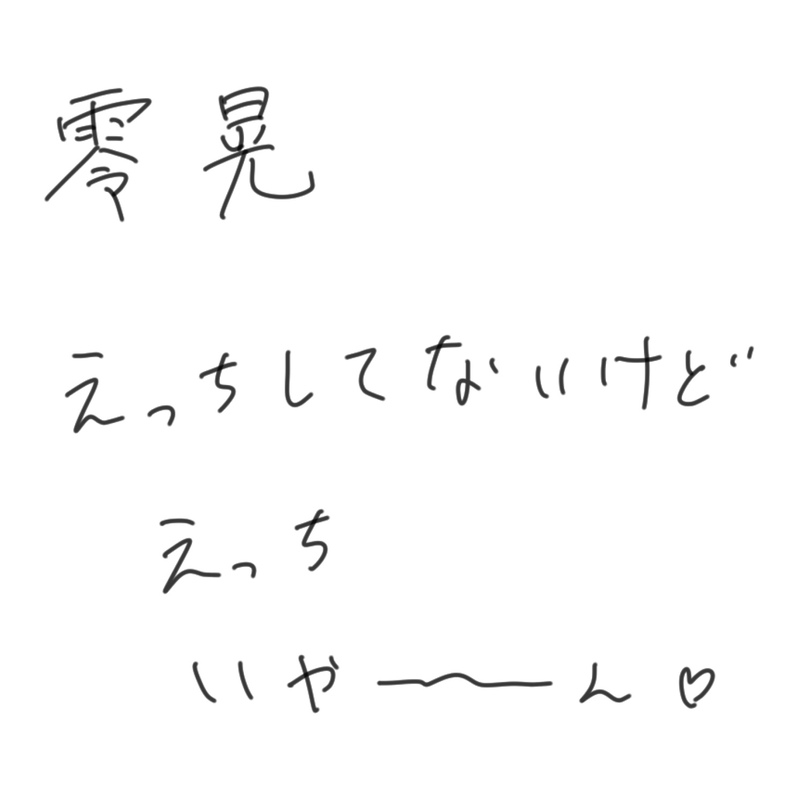 零晃
えっちしてないけど
えっち
いやーーん♡